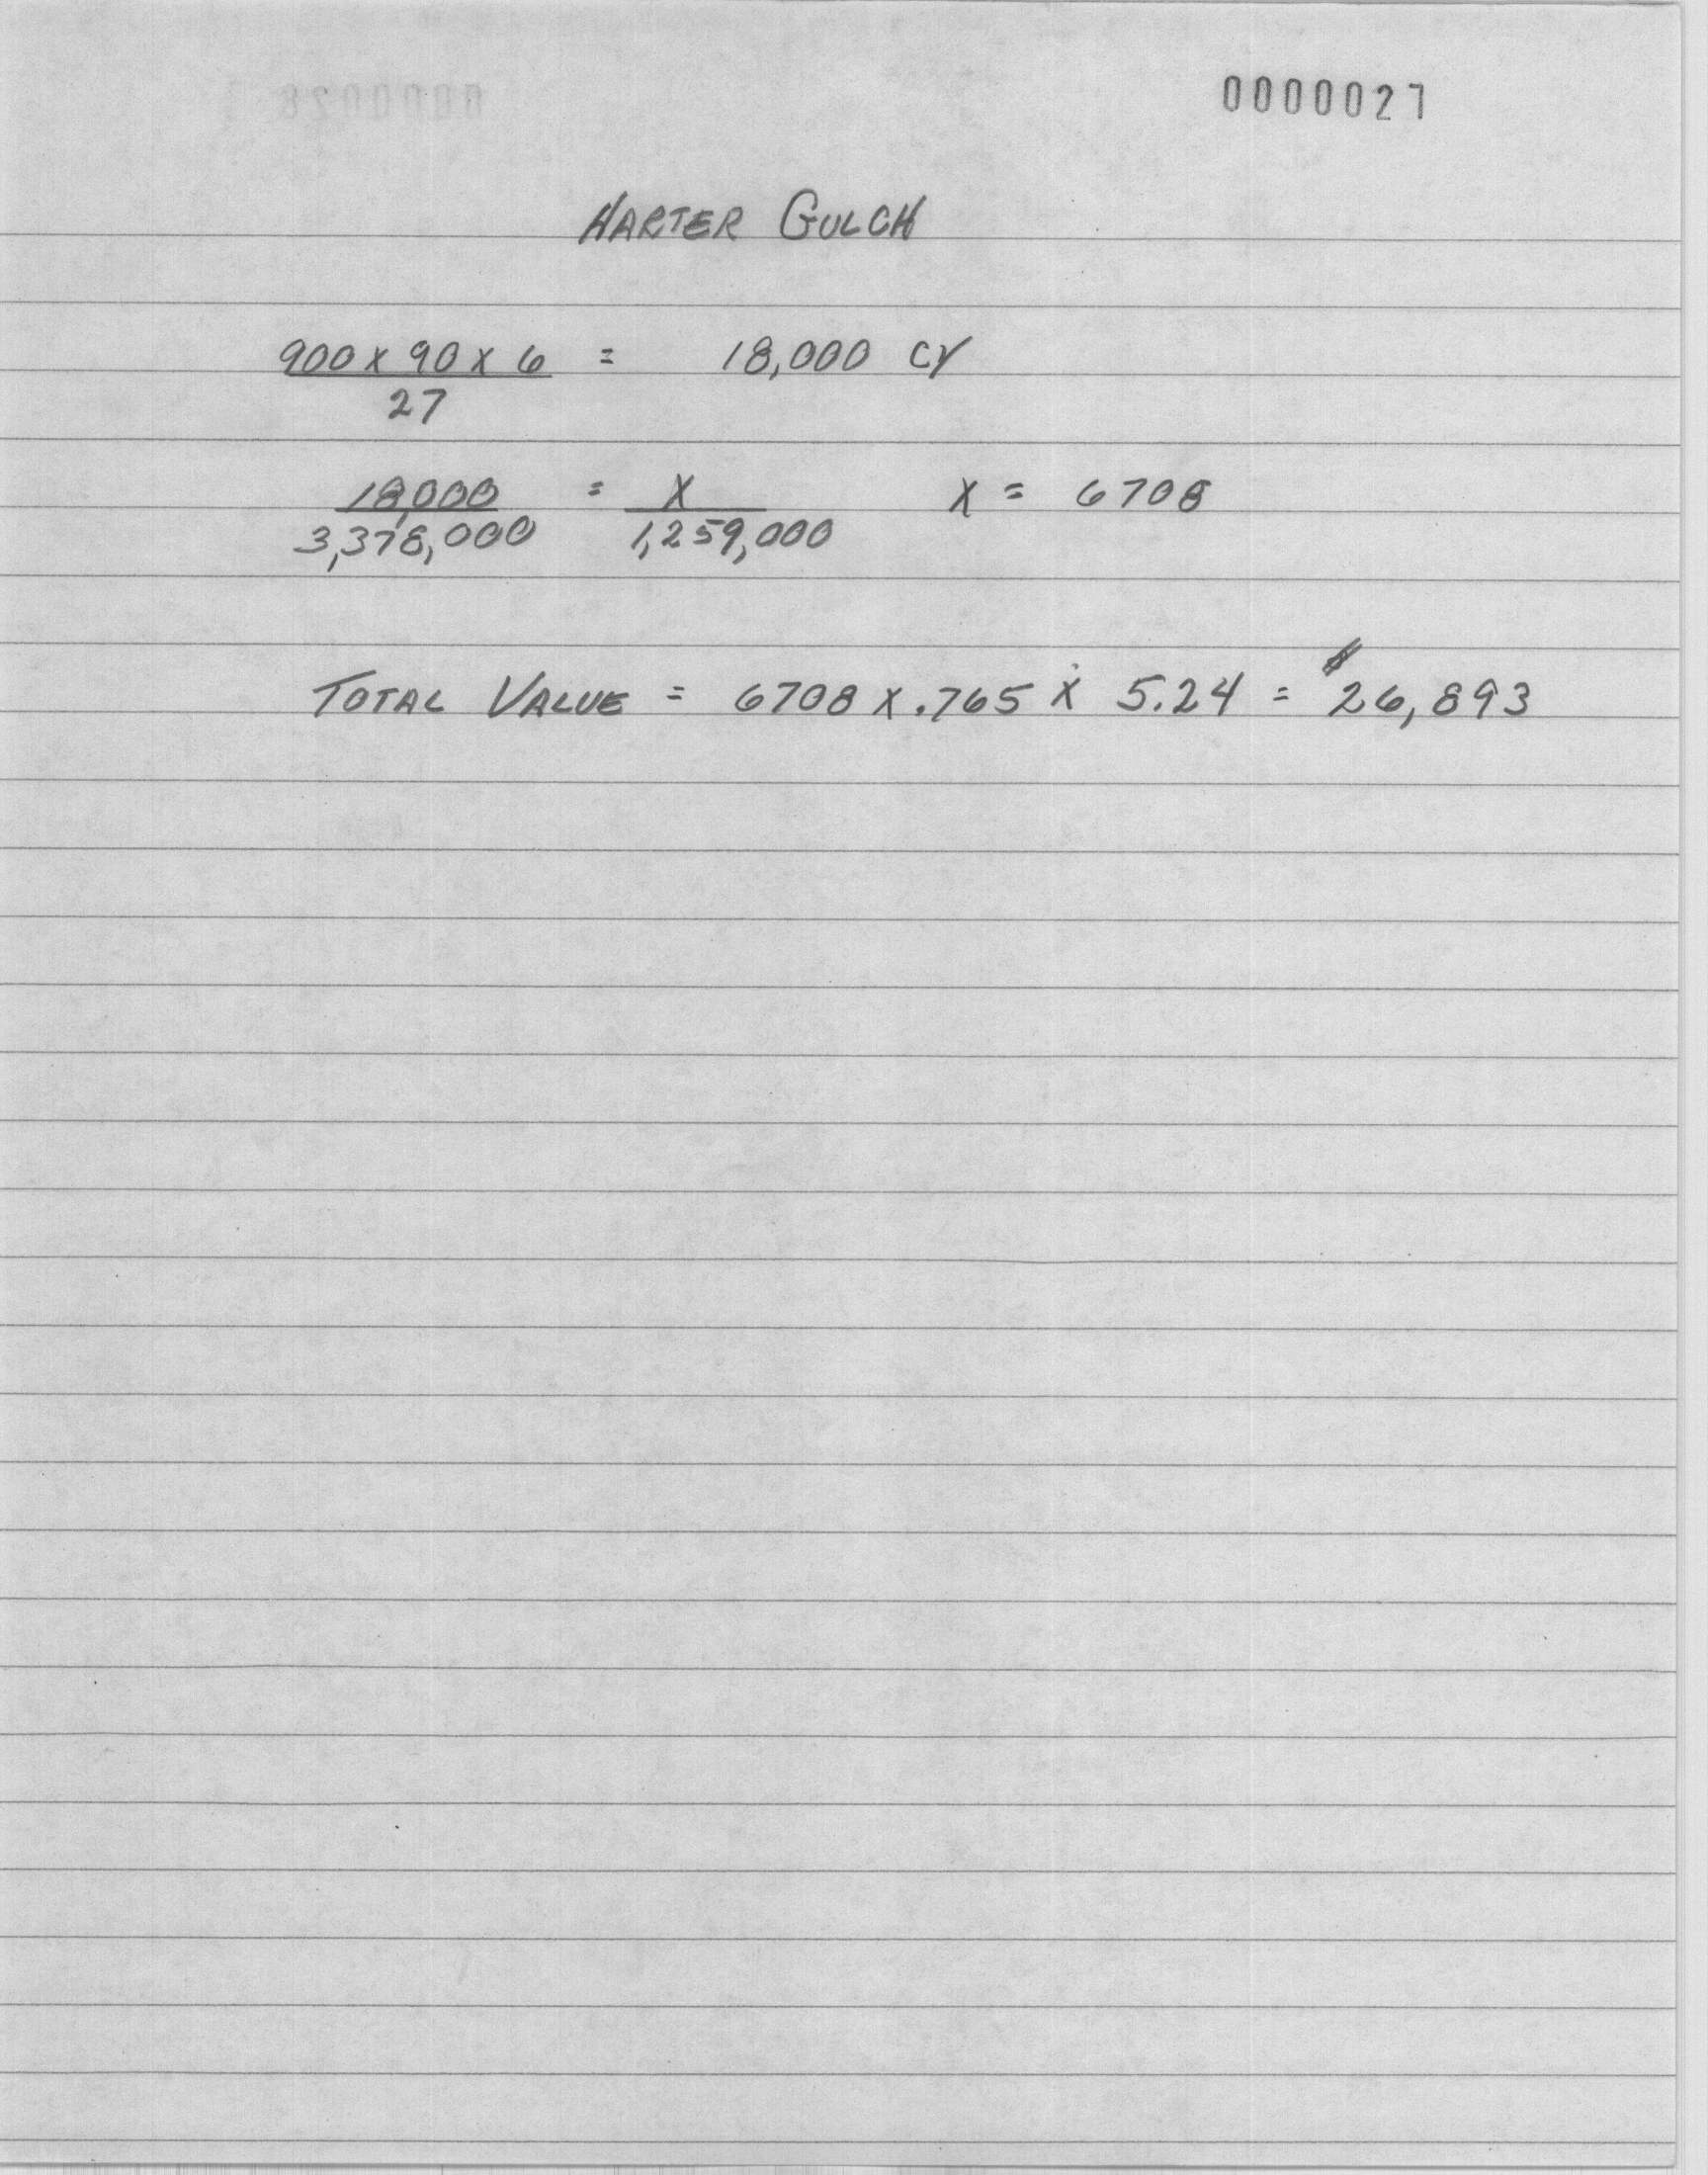 0000028
0000027
HARTER GULCH
900 x 90 x 6 = 18,000 CY
27
18,000 = X X = 6708
3,378,000 1,259,000
TOTAL VALUE = 6708 x .765 x 5.24 = $26,893